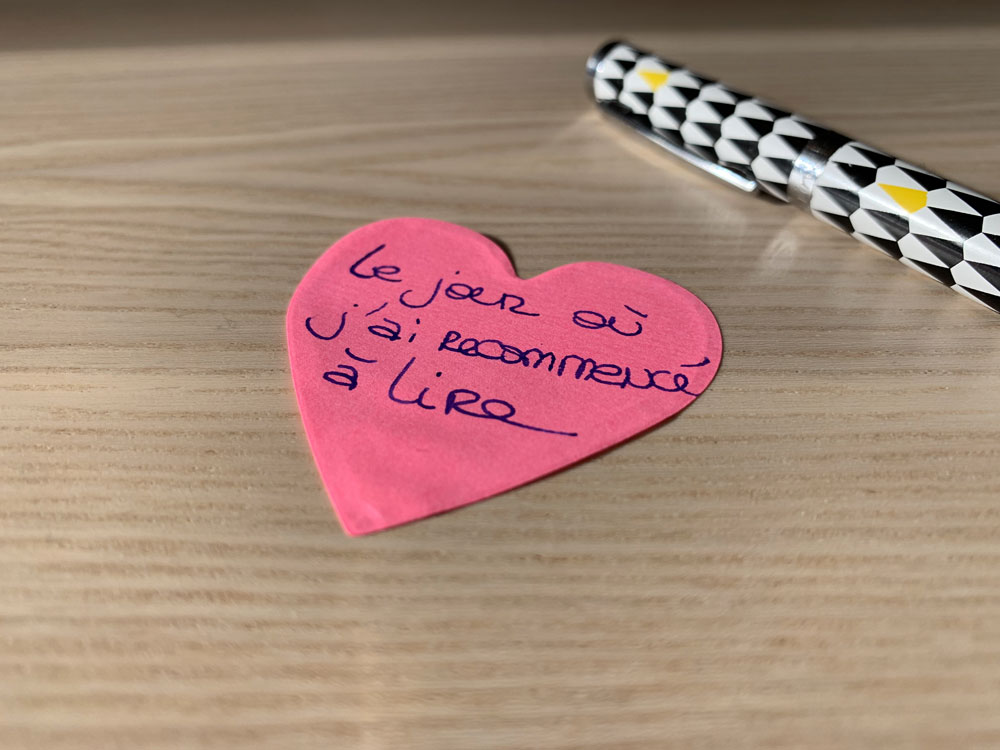 Le jour où
j'ai recommencé
à lire